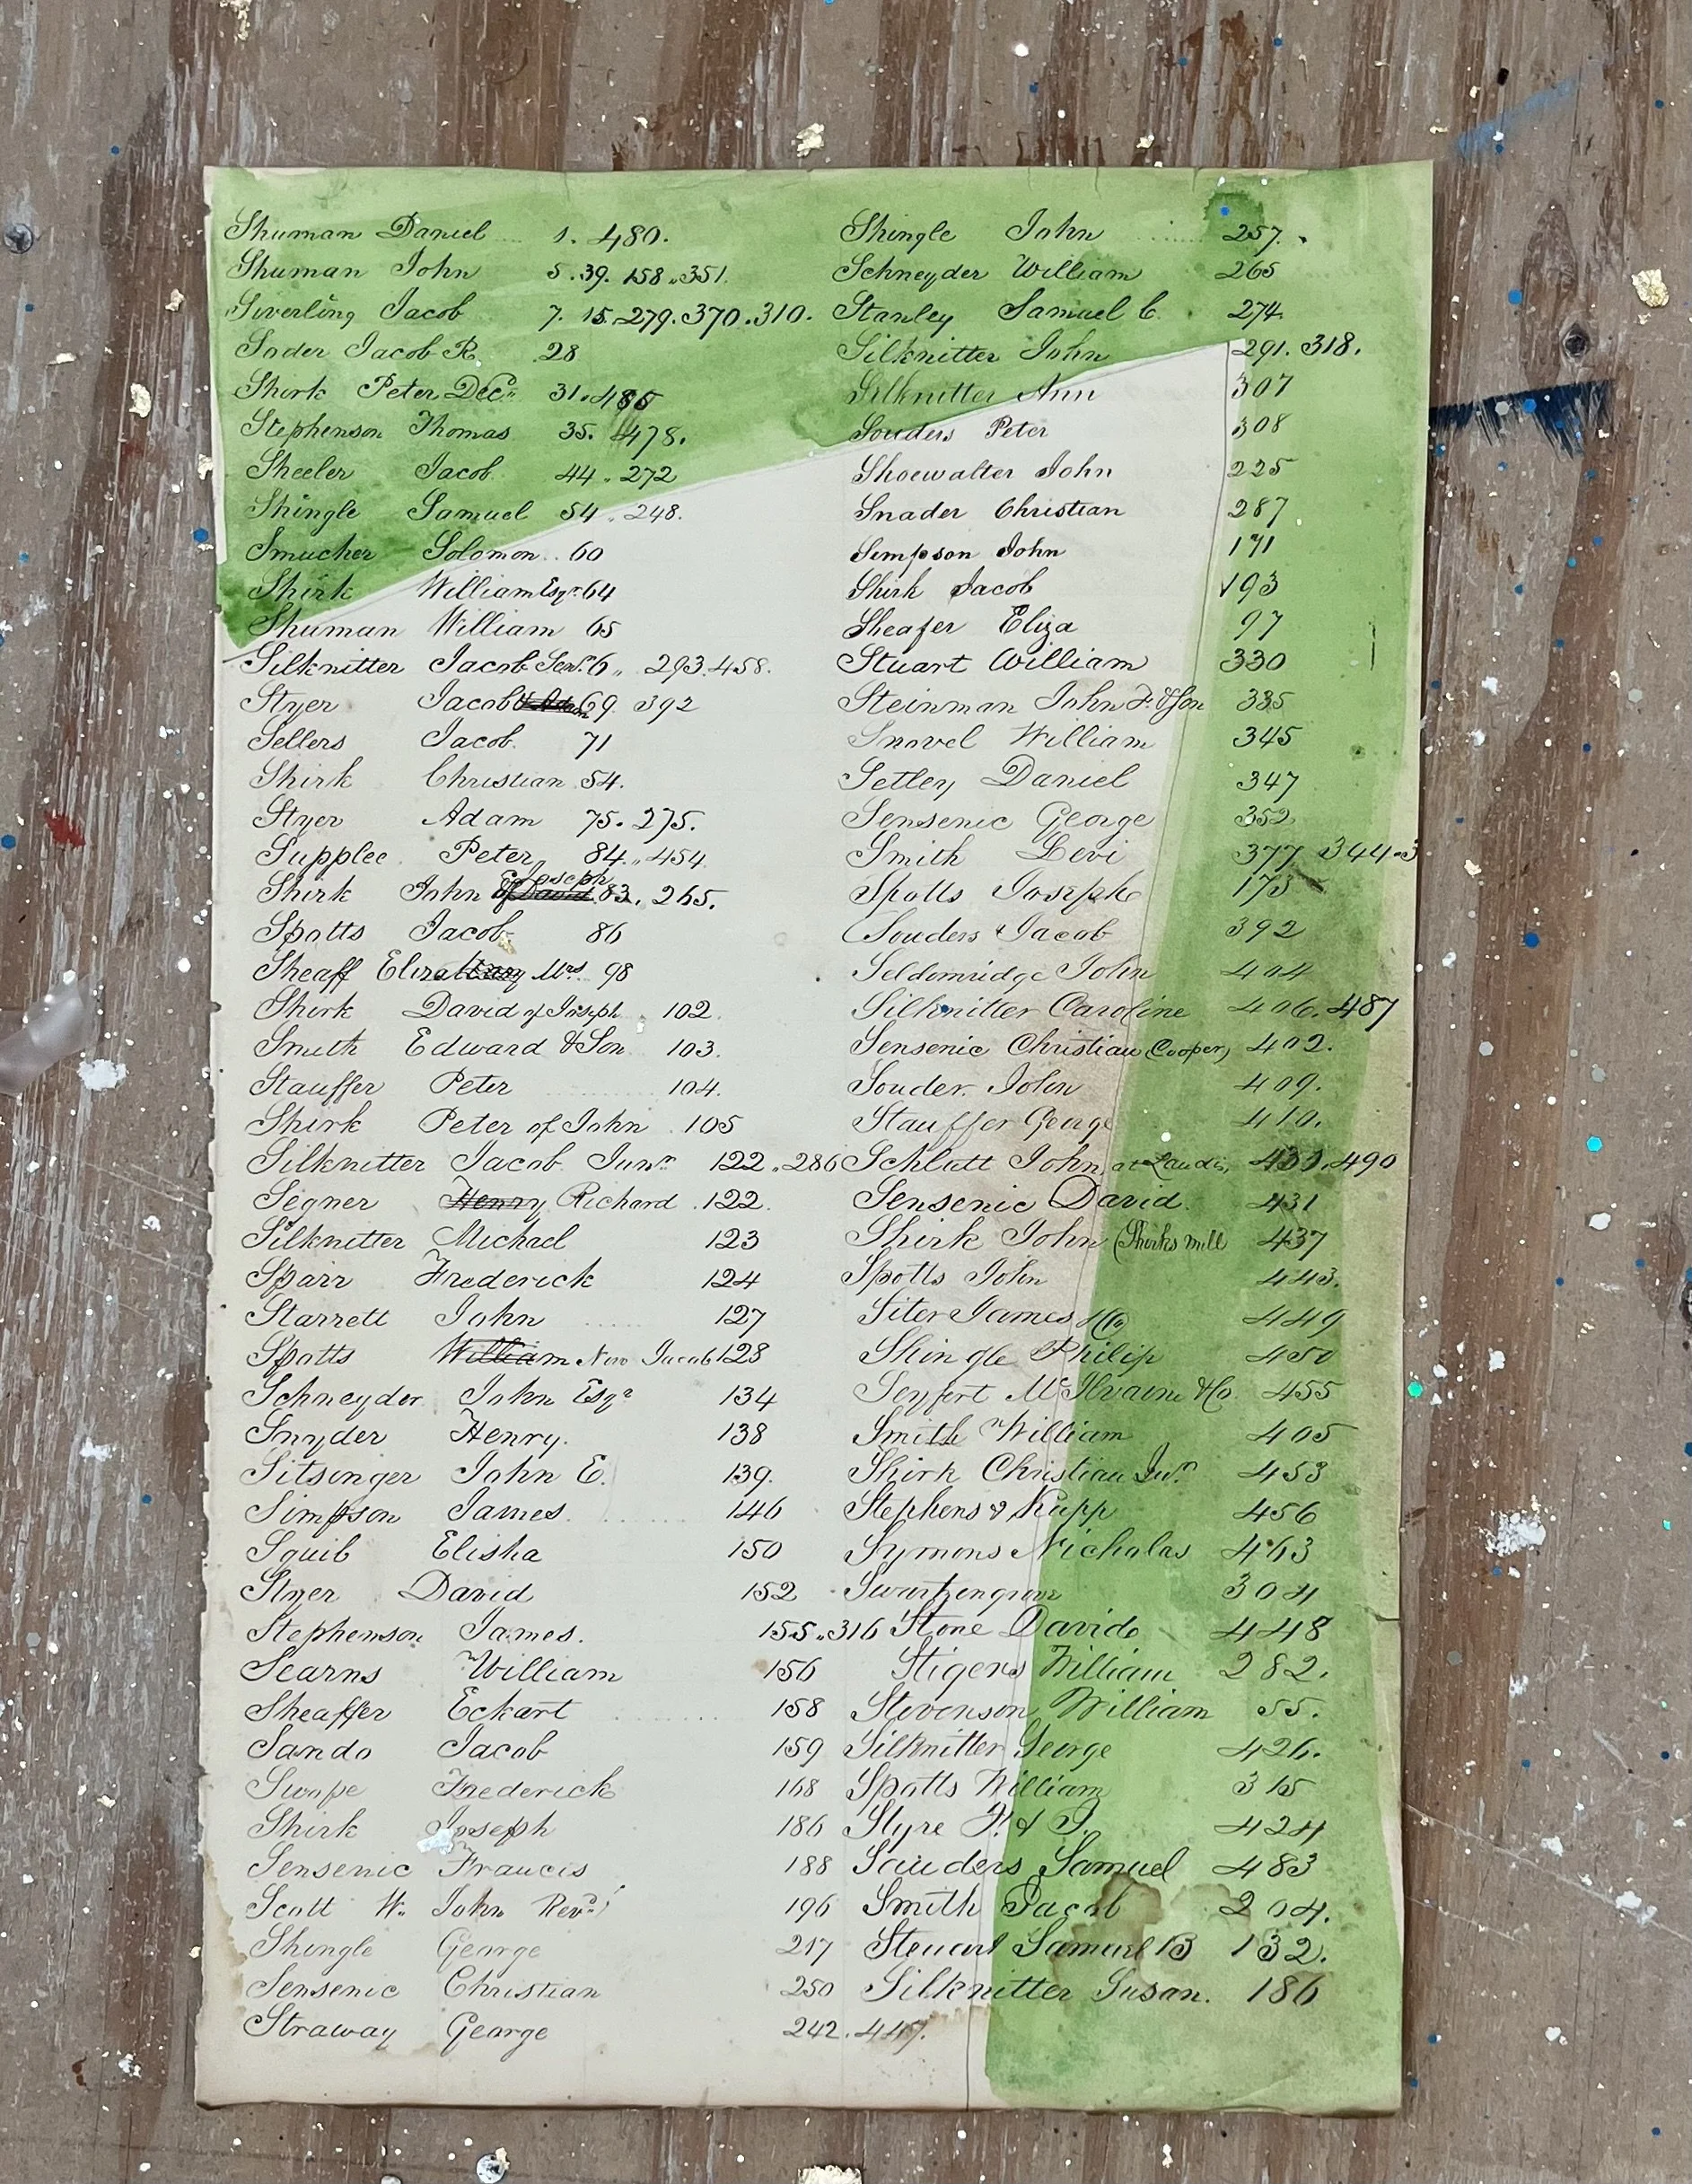 Shuman Daniel 1. 480.
Shuman John 5. 39. 158. 351.
Siverling Jacob 7. 15. 279. 370. 310.
Soder Jacob R. 28
Shirk Peter Decd. 31. 486
Stephenson Thomas 35. 478.
Sheeler Jacob 44. 272
Shingle Samuel 54. 248.
Smucker Solomon 60
Shirk William Esqr. 64
Shuman William 65
Silknitter Jacob Senr. 6 293. 458.
Styer Jacob 69. 392
Sellers Jacob. 71
Shirk Christian 54.
Styer Adam 75. 275.
Supplee Peter 84. 454
Shirk John Joseph 83. 265.
Spotts Jacob 86
Sheaff Eliza Mrs 98
Shirk David of Joseph 102
Smith Edward & Son 103.
Stauffer Peter 104.
Shirk Peter of John 105
Silknitter Jacob Junr. 122. 286
Segner Henry Richard 122.
Silknitter Michael 123
Sparr Frederick 124
Starrett John 127
Spotts William Now Jacob 128
Schneyder John Esqr 134
Snyder Henry. 138
Sitsinger John E. 139.
Simpson James 146
Squib Elisha 150
Styer David 152
Stephenson James. 155. 316
Searns William 156
Sheaffer Eckart 158
Sando Jacob 159
Swope Frederick 168
Shirk Joseph 186
Sensenic Francis 188
Scott W. John Revd. 196
Shingle George 217
Sensenic Christian 250
Straway George 242. 447.
Shingle John 257.
Schneyder William 265
Stanley Samuel C. 274
Silknitter John 291. 318.
Silknitter Ann 307
Souders Peter 308
Shoewalter John 225
Snader Christian 287
Simpson John 171
Shirk Jacob 193
Sheafer Eliza 97
Stuart William 330
Steinman John F. & Son 335
Snovel William 345
Setley Daniel 347
Sensenic George 352
Smith Levi 377 344
Spotts Joseph 175
Souders & Jacob 392
Seldomridge John 404
Silknitter Caroline 406. 487
Sensenic Christian (Cooper) 402.
Souder John 409.
Stauffer George 410.
Schlatt John at Landis, 490
Sensenic David 431
Shirk John (Shirks mill 437
Spotts John 443.
Siter James & Co 449
Shingle Philip 450
Seyfert McIlvaine & Co. 455
Smith William 405
Shirk Christian Junr 453
Stephens & Rupp 456
Symons Nicholas 463
Swartzengrove 304
Stone David 448
Stigers William 282.
Stevenson William 55.
Silknitter George 426.
Spotts William 315
Styre A. & J. 424
Sauders Samuel 483
Smith Jacob 204.
Steuart Samuel B 132.
Silknitter Susan. 186